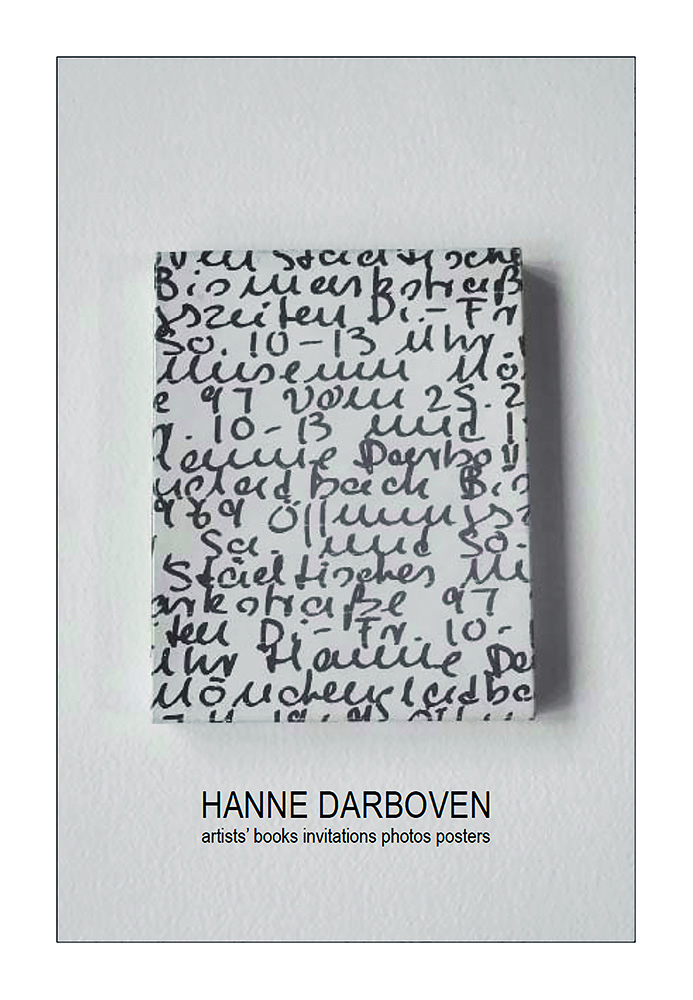 ven Städtische
Bismarkstraß
gszeiten Di.- Fr
So. 10-13 Uhr.
Museum Mö
e 97 vom 25.2
r. 10-13 und 1
Hanne Darbov
nchengladbach Bis
969 Öffnungsz
Sa. und So.
Städtisches Mu
arkstraße 97
iten Di.- Fr. 10-
Uhr Hanne Da
Mönchengladba
HANNE DARBOVEN
artists' books invitations photos posters